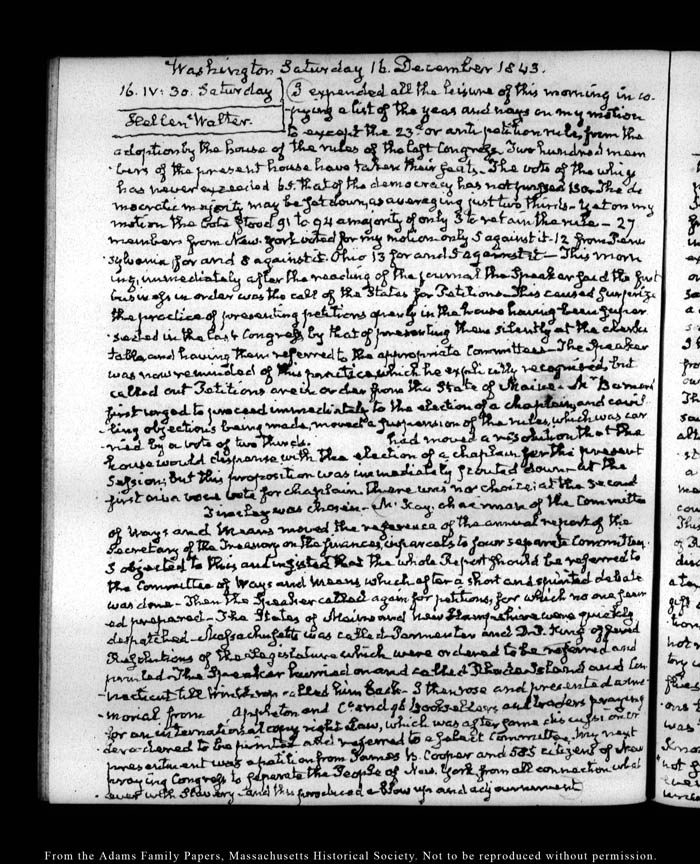 Washington Saturday 16. December 1843.
16. IV: 30. Saturday
Hellen Walter.
I expended all the leisure of this morning in co-
pying a list of the yeas and nays on my motion
to except the 23d or anti petition rule, from the
adoption by the house of the rules of the last Congress. Two hundred mem
bers of the present house have taken their seats. The vote of the whigs
has never exceeded 65. that of the democracy has not passed 130. The de
mocratic majority may be set down, as averaging just two thirds. Yet on my
motion the vote stood 91 to 94 a majority of only 3 to retain the rule — 27
members from New-York voted for my motion only 5 against it. 12 from Penn
sylvania, for and 8 against it. Ohio 13 for and 5 against it — This morn
ing, immediately after the reading of the journal the Speaker said the first
business in order was the call of the States for Petitions. This caused surprize
the practice of presenting petitions openly in the house having been super
seded in the last Congress by that of presenting them silently at the clerks
table, and having them referred to the appropriate Committees — The Speaker
was now reminded of this practice, which he explicitly recognised, but
called out Petitions are in order from the State of Maine. Mr Barnard
first urged to proceed immediately to the election of a chaplain, and cavil
ling objections being made, moved a suspension of the rules, which was car
ried by a vote of two thirds. had moved a resolution that the
house would dispense with the election of a chaplain for the present
Session; but this proposition was immediately flouted down — at the
first viva voce vote for chaplain there was no choice; at the second
Tinsley was chosen — Mc.Kay, chairman of the Committee
of Ways and Means moved the reference of the annual report of the
Secretary of the Treasury on the finances, in parcels to four separate Committees.
I objected to this and insisted that the whole Report should be referred to
the Committee of Ways and Means, which after a short and spirited debate
was done — Then the Speaker called again for petitions, for which no one seem
ed prepared — The States of Maine and New Hampshire were quickly
despatched — Massachusetts was called — Parmenter and D. P. King offered
Resolutions of the Legislature which were ordered to be referred and
printed. The Speaker hurried on and called Rhode Island and Con
necticut till Winthrop called him back — I then rose and presented a me
morial from Appleton and Co and 96 booksellers and traders praying
for an international copy right Law, which was after some discussion or
dered to be printed and referred to a select Committee. My next
presentment was a petition from James B. Cooper and 583 citizens of New York
praying Congress to separate the People of New York from all connection what
ever with Slavery — and this produced a blow up and adjournment
From the Adams Family Papers, Massachusetts Historical Society. Not to be reproduced without permission.